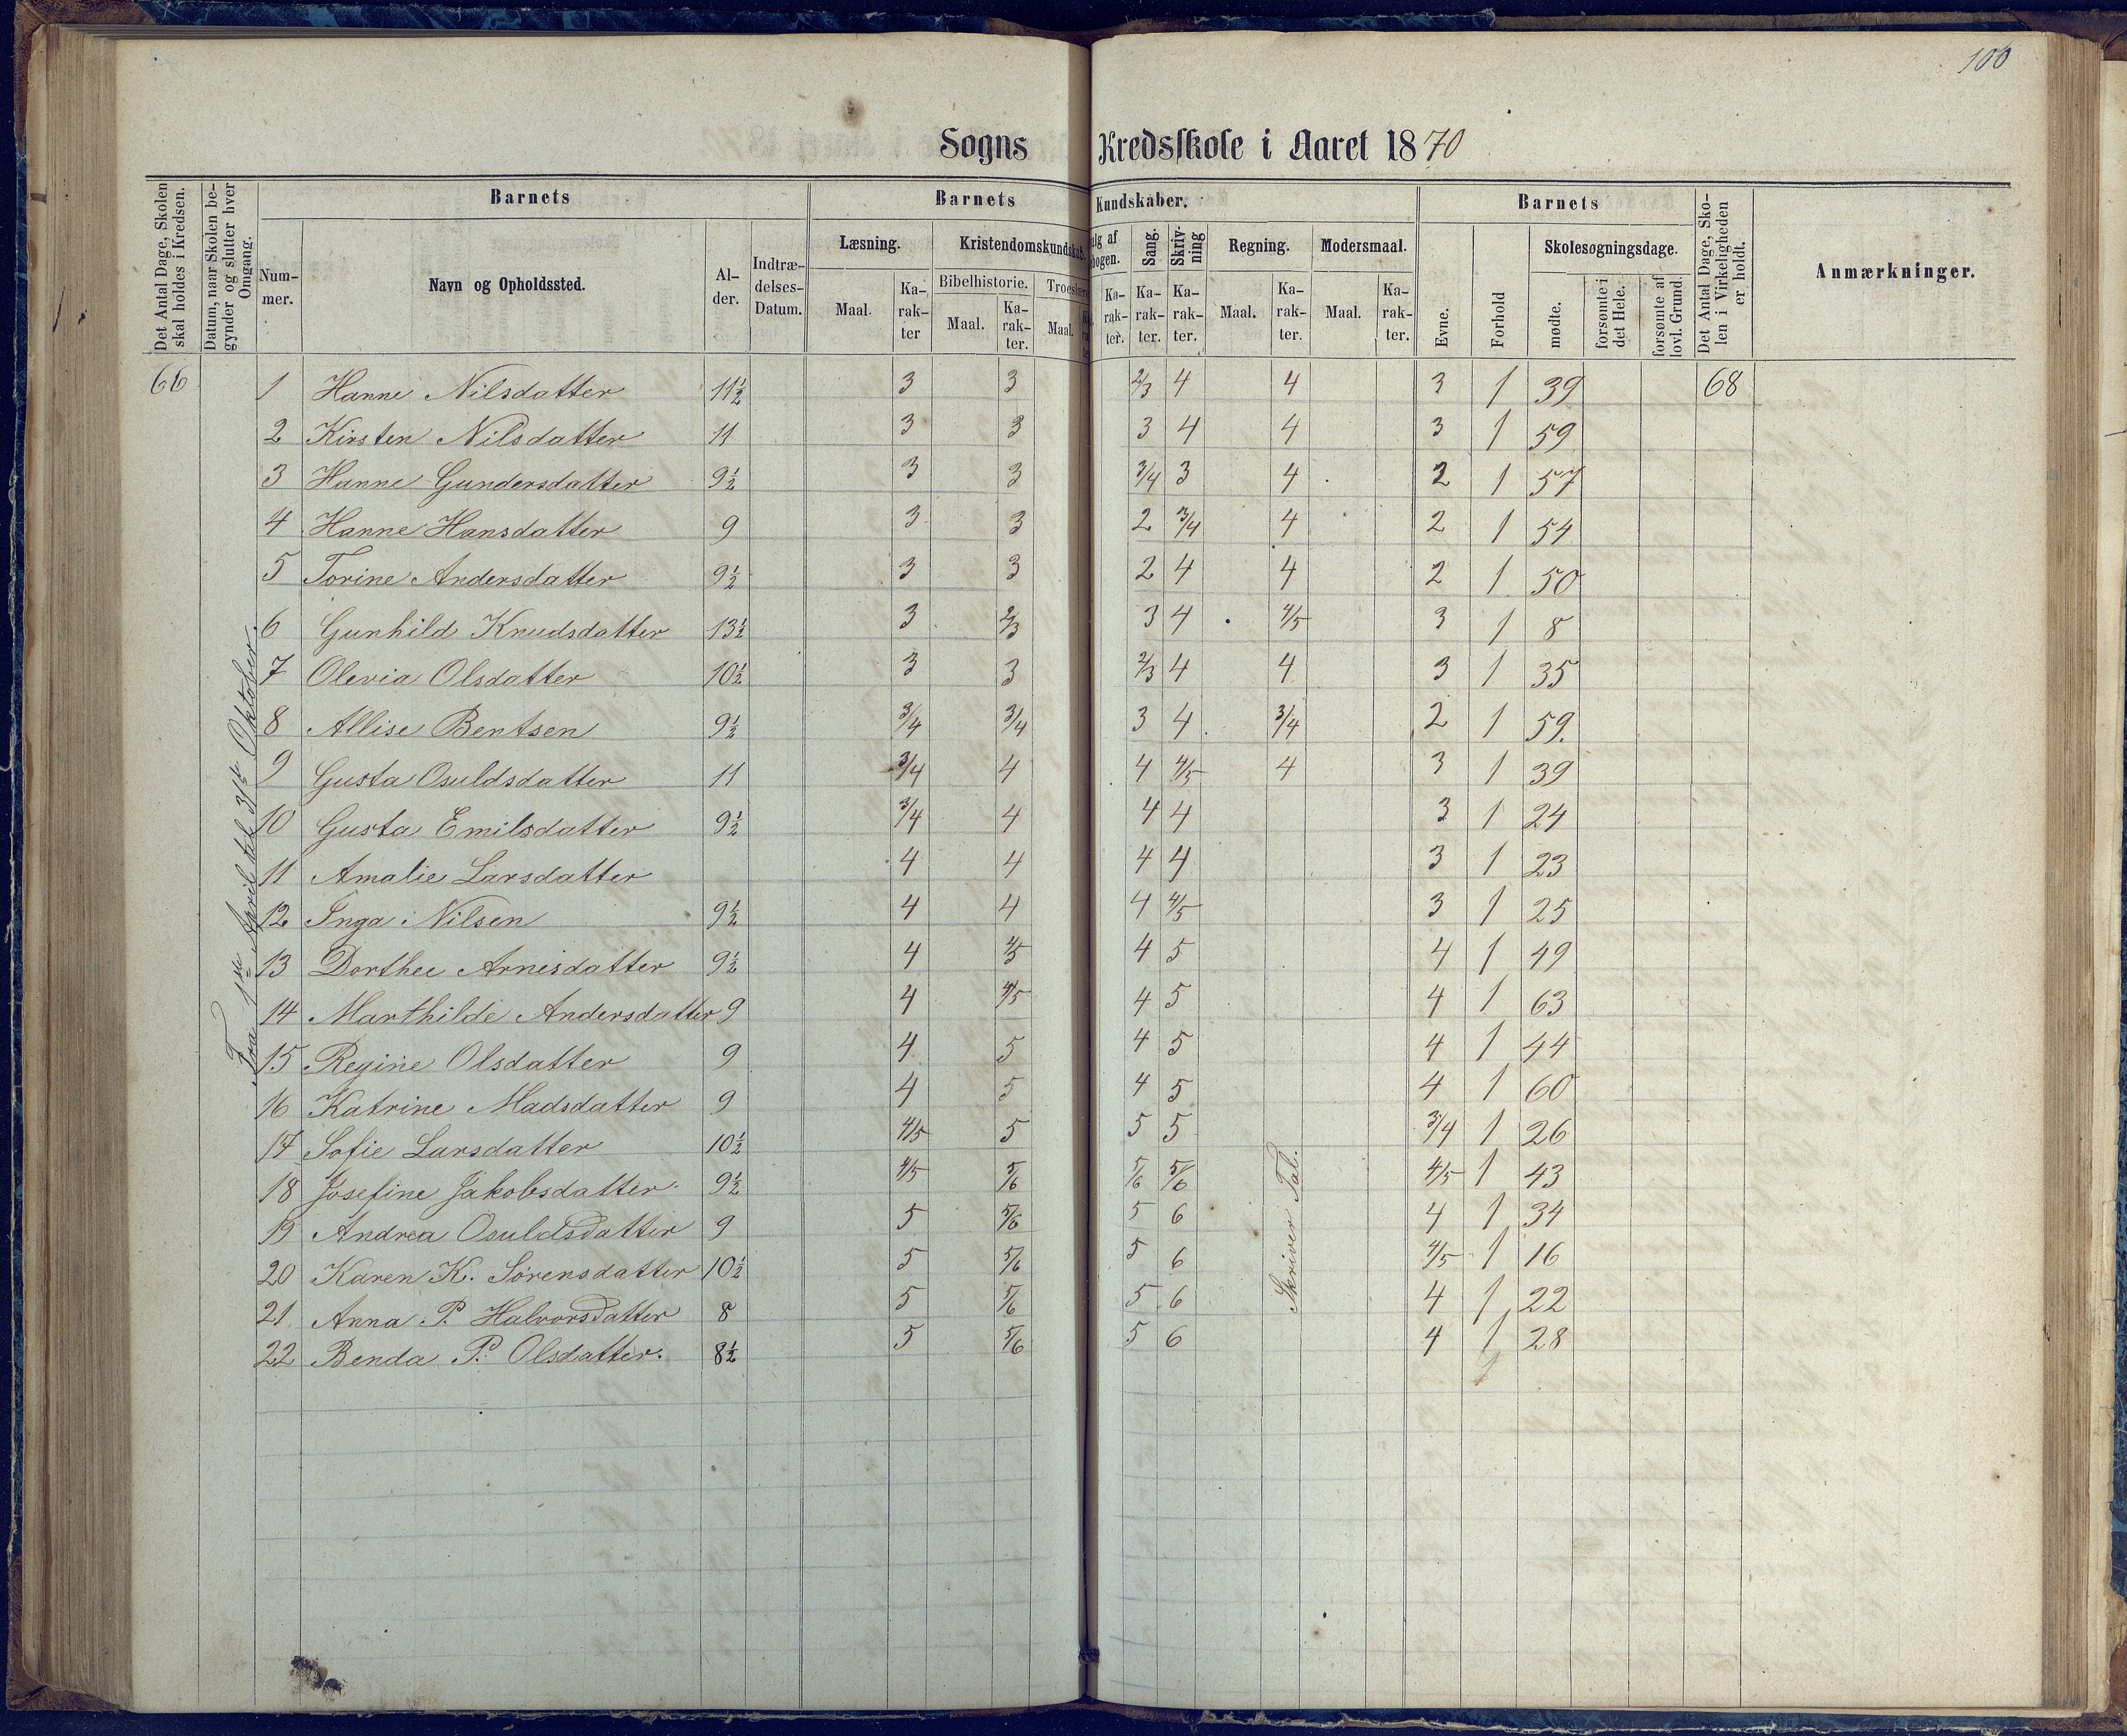 100
Sogns Kredsskole i Aaret 1870
Det Antal Dage, Skolen skal holdes i Kredsen.
Datum, naar Skolen begynder og slutter hver Omgang.
Barnets
Nummer.
Navn og Opholdssted.
Alder.
Indtrædelses-Datum.
Barnets Kundskaber.
Læsning.
Maal.
Karakter
Kristendomskundskab.
Bibelhistorie.
Maal.
Karakter.
Troeslære
Maal.
alg af
bogen.
Karakter.
Sang.
Karakter.
Skrivning
Karakter.
Regning.
Maal.
Karakter.
Modersmaal.
Maal.
Karakter.
Barnets
Evne.
Forhold
Skolesøgningsdage.
mødte.
forsømte i det Hele.
forsømte af lovl. Grund.
Det Antal Dage, Skolen i Virkeligheden er holdt.
Anmærkninger.
66 1 Hanne Nilsdatter 11½ 3 3 2/3 4 4 3 1 39 68
2 Kirsten Nilsdatter 11 3 3 3 4 4 3 1 59
3 Hanne Gundersdatter 9½ 3 3 3/4 3 4 2 1 57
4 Hanne Hansdatter 9 3 3 2 3/4 4 2 1 54
5 Torine Andersdatter 9½ 3 3 2 4 4 2 1 50
6 Gunhild Knudsdatter 13½ 3 2/3 3 4 4/5 3 1 8
7 Olevia Olsdatter 10½ 3 3 2/3 4 4 3 1 35
8 Allise Bentsen 9½ 3/4 3/4 3 4 3/4 2 1 59.
9 Gusta Osuldsdatter 11 3/4 4 4 4/5 4 3 1 39
10 Gusta Emilsdatter 9½ 3/4 4 4 4 3 1 24
11 Amalie Larsdatter 4 4 4 4 3 1 23
12 Inga Nilsen 9½ 4 4 4 4/5 3 1 25
13 Dorthee Arnesdatter 9½ 4 4/5 4 5 4 1 49
14 Marthilde Andersdatter 9 4 4/5 4 5 4 1 63
15 Regine Olsdatter 9 4 5 4 5 4 1 44
16 Katrine Madsdatter 9 4 5 4 5 4 1 60
17 Sofie Larsdatter 10½ 4/5 5 5 5 3/4 1 26
18 Josefine Jakobsdatter 9½ 4/5 5/6 5/6 5/6 4/5 1 43
19 Andrea Osuldsdatter 9 5 5/6 5 6 4 1 34
20 Karen K. Sørensdatter 10½ 5 5/6 5 6 4/5 1 16
21 Anna P. Halvorsdatter 8 5 5/6 5 6 4 1 22
22 Benda P. Olsdatter. 8½ 5 5/6 5 6 4 1 28
Fra 1ste April til 31te Oktober.
Skriver Tal.